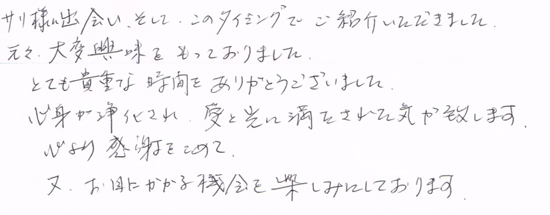 サリ様に出会い、そして、このタイミングでご紹介いただきました。
元々、大変興味をもっておりました。
とても貴重な時間をありがとうございました。
心身が浄化され、愛と光に満たされた気が致します。
心より感謝をこめて。
又、お目にかかる機会を楽しみにしております。